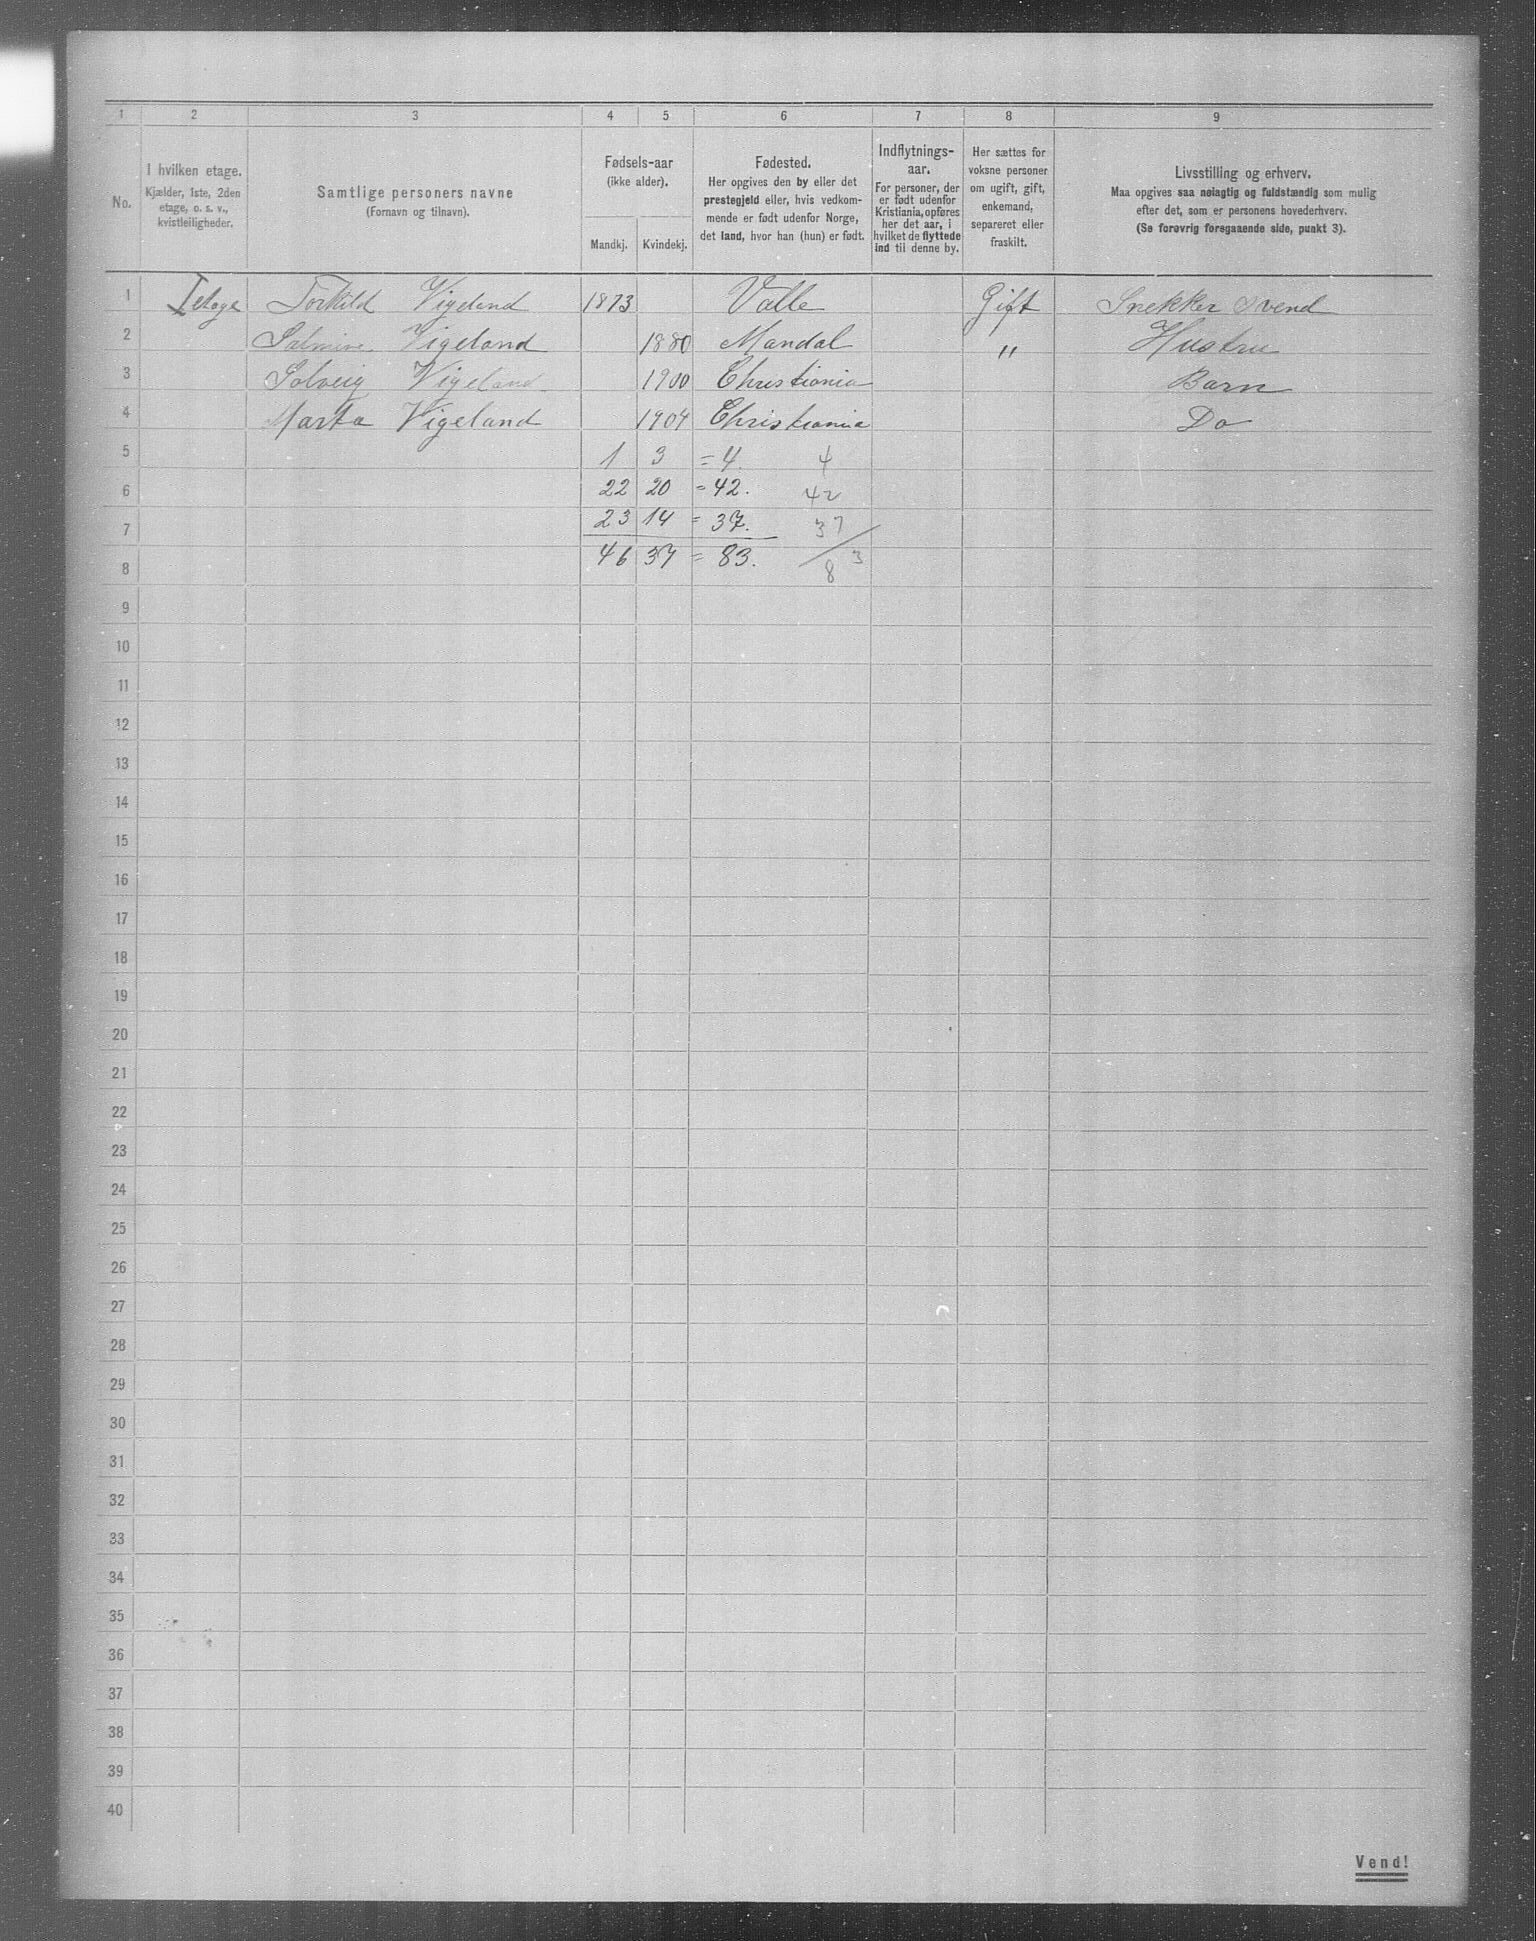 1 2 3 4 5 6 7 8 9
No. I hvilken etage. Kjælder, 1ste, 2den etage, o. s. v., kvistleiligheder. Samtlige personers navne (Fornavn og tilnavn). Fødsels-aar (ikke alder). Mandkj. Kvindekj. Fødested. Her opgives den by eller det prestegjeld eller, hvis vedkommende er født udenfor Norge, det land, hvor han (hun) er født. Indflytnings-aar. For personer, der er født udenfor Kristiania, opføres her det aar, i hvilket de flyttede ind til denne by. Her sættes for voksne personer om ugift, gift, enkemand, separeret eller fraskilt. Livsstilling og erhverv. Maa opgives saa nøiagtig og fuldstændig som mulig efter det, som er personens hovederhverv. (Se forøvrig foregaaende side, punkt 3).
1 I etage Torkild Vigeland 1873 Valle Gift Snekker Svend
2 Salmine Vigeland 1880 Mandal " Hustru
3 Solveig Vigeland 1900 Christiania Barn
4 Marta Vigeland 1904 Christiania Do
5 1 3 = 4. 4
6 22 20 = 42. 42
7 23 14 = 37. 37
8 46 37 = 83. 83
9
10
11
12
13
14
15
16
17
18
19
20
21
22
23
24
25
26
27
28
29
30
31
32
33
34
35
36
37
38
39
40
Vend!